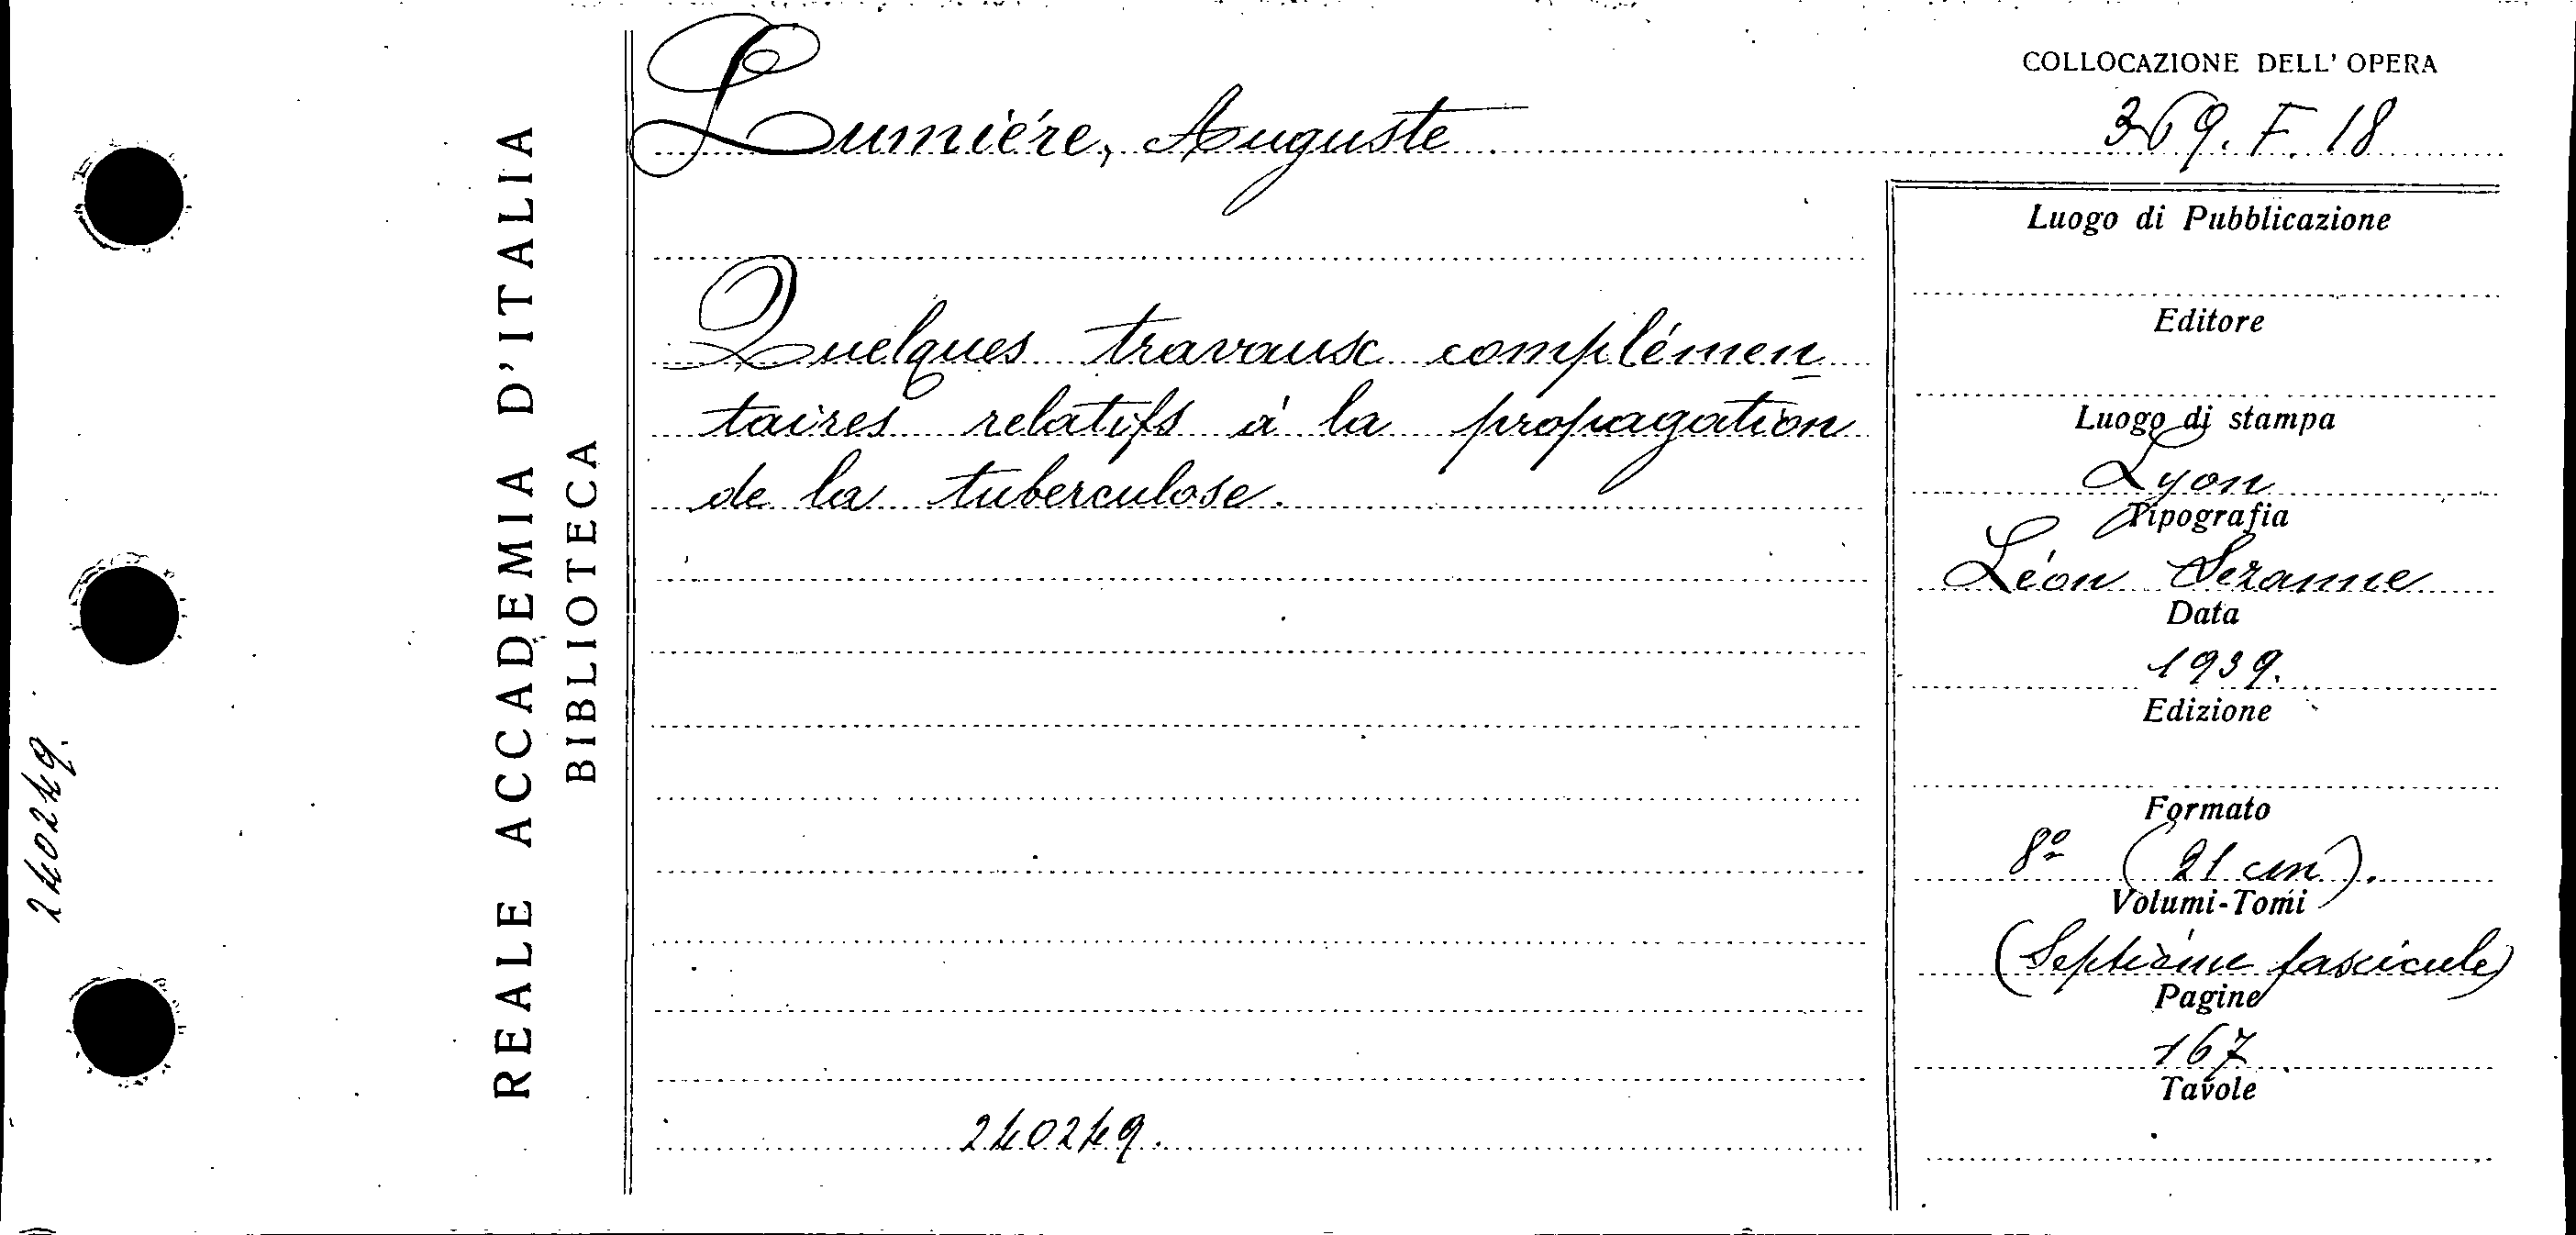 REALE ACCADEMIA D'ITALIA
BIBLIOTECA
240249.
Lumiére, Auguste
Quelques travaux complémen
taires relatifs à la propagation
de la tuberculose.
240249.
COLLOCAZIONE DELL' OPERA
369. F. 18
Luogo di Pubblicazione
Editore
Luogo di stampa
Lyon
Tipografia
Léon Sezanne
Data
1939.
Edizione
Formato
8º (21 cm).
Volumi-Tomi
(Septième fascicule)
Pagine
167
Tavole